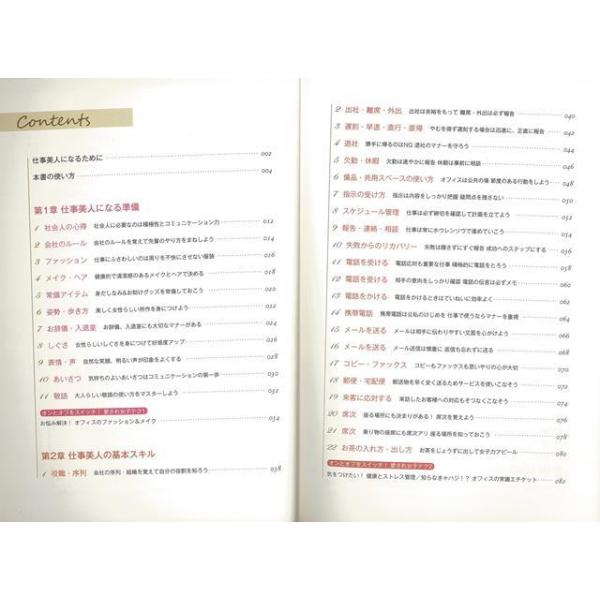 Contents
仕事美人になるために 002
本書の使い方 004
第1章 仕事美人になる準備
1 社会人の心得 社会人に必要なのは積極性とコミュニケーション力 012
2 会社のルール 会社のルールを覚えて先輩のやり方をまねしよう 014
3 ファッション 仕事にふさわしいのは周りを不快にさせない服装 016
4 メイク・ヘア 健康的で清潔感のあるメイクとヘアで決める 018
5 常備アイテム 身だしなみ&お助けグッズを常備しておこう 020
6 姿勢・歩き方 美しく女性らしい所作を身につけよう 022
7 お辞儀・入退室 お辞儀、入退室にも大切なマナーがある 024
8 しぐさ 女性らしいしぐさを身につけて好感度アップ 026
9 表情・声 自然な笑顔、明るい声が印象をよくする 028
10 あいさつ 気持ちのよいあいさつはコミュニケーションの第一歩 030
11 敬語 大人らしい敬語の使い方をマスターしよう 032
オンとオフをスイッチ! 愛され女子テク1
お悩み解決! オフィスのファッション&メイク 034
第2章 仕事美人の基本スキル
1 役職・序列 会社の序列・組織を覚えて自分の役割を知ろう 038
2 出社・離席・外出 出社は余裕をもって 離席・外出は必ず報告 040
3 遅刻・早退・直行・直帰 やむを得ず遅刻する場合は迅速に、正直に報告 042
4 退社 勝手に帰るのはNG 退社のマナーを守ろう 044
5 欠勤・休暇 欠勤は速やかに報告 休暇は事前に相談 046
6 備品・共用スペースの使い方 オフィスは公共の場 節度のある行動をしよう 048
7 指示の受け方 指示は内容をしっかり把握 疑問点を残さない 050
8 スケジュール管理 仕事は必ず締切を確認して計画を立てよう 052
9 報告・連絡・相談 仕事は常にホウレンソウで進めていこう 054
10 失敗からのリカバリー 失敗は隠さずにすぐ報告 成功へのステップにする 056
11 電話を受ける 電話応対も重要な仕事 積極的に電話をとろう 058
12 電話を受ける 相手の意向をしっかり確認 電話の伝言は必ずメモ 060
13 電話をかける 電話をかけるときはていねいに効率よく 062
14 携帯電話 携帯電話は公私のけじめを 仕事で使うならマナーを重視 064
15 メールを送る メールは相手に伝わりやすい文面を心がけよう 066
16 メールを送る メール送信は慎重に 返信も忘れずに送る 068
17 コピー・ファックス コピーもファックスも思いやりの心が大切 070
18 郵便・宅配便 郵送物を早く安く送るためサービスを使いこなそう 072
19 来客に応対する 来訪したお客様への対応もそつなくこなそう 074
20 席次 座る場所にも決まりがある! 席次を覚えよう 076
21 席次 乗り物の座席にも席次アリ 座る場所を知っておこう 078
22 お茶の入れ方・出し方 お茶をじょうずに出して女子力アピール 080
オンとオフをスイッチ! 愛され女子テク2
気をつけたい! 健康とストレス管理/知らなきゃハジ!? オフィスの常識エチケット 082